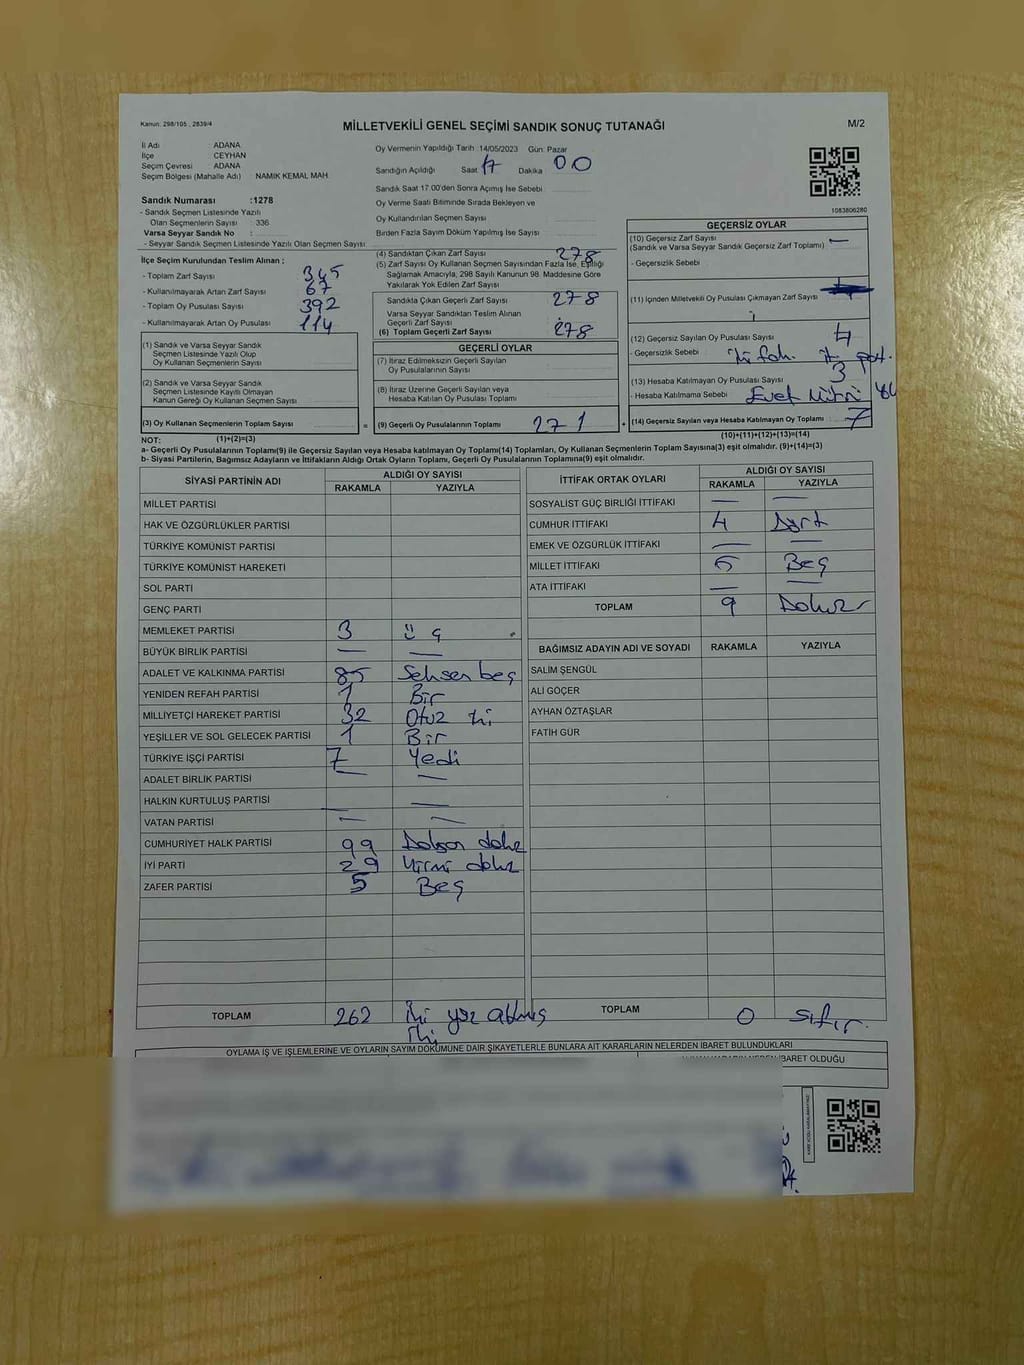 Kanun: 298/105 , 2839/4
MİLLETVEKİLİ GENEL SEÇİMİ SANDIK SONUÇ TUTANAĞI
M/2
İl Adı ADANA
İlçe CEYHAN
Seçim Çevresi ADANA
Seçim Bölgesi (Mahalle Adı) NAMIK KEMAL MAH
Sandık Numarası :1278
- Sandık Seçmen Listesinde Yazılı
Olan Seçmenlerin Sayısı : 336
Varsa Seyyar Sandık No :
- Seyyar Sandık Seçmen Listesinde Yazılı Olan Seçmen Sayısı
Oy Vermenin Yapıldığı Tarih : 14/05/2023 Gün: Pazar
Sandığın Açıldığı Saat 17 Dakika 00
Sandık Saat 17.00'den Sonra Açımış İse Sebebi
Oy Verme Saati Bitiminde Sırada Bekleyen ve
Oy Kullandırılan Seçmen Sayısı
Birden Fazla Sayım Döküm Yapılmış İse Sayısı
1083806280
İlçe Seçim Kurulundan Teslim Alınan ;
- Toplam Zarf Sayısı 345
- Kullanılmayarak Artan Zarf Sayısı 67
- Toplam Oy Pusulası Sayısı 392
- Kullanılmayarak Artan Oy Pusulası 114
(1) Sandık ve Varsa Seyyar Sandık
Seçmen Listesinde Yazılı Olup
Oy Kullanan Seçmenlerin Sayısı
(2) Sandık ve Varsa Seyyar Sandık
Seçmen Listesinde Kayıtlı Olmayan
Kanun Gereği Oy Kullanan Seçmen Sayısı
(3) Oy Kullanan Seçmenlerin Toplam Sayısı
(4) Sandıktan Çıkan Zarf Sayısı 278
(5) Zarf Sayısı Oy Kullanan Seçmen Sayısından Fazla İse, Eşitliği
Sağlamak Amacıyla, 298 Sayılı Kanunun 98. Maddesine Göre
Yakılarak Yok Edilen Zarf Sayısı
Sandıkta Çıkan Geçerli Zarf Sayısı 278
Varsa Seyyar Sandıktan Teslim Alınan
Geçerli Zarf Sayısı
(6) Toplam Geçerli Zarf Sayısı 278
GEÇERLİ OYLAR
(7) İtiraz Edilmeksizin Geçerli Sayılan
Oy Pusulalarının Sayısı
(8) İtiraz Üzerine Geçerli Sayılan veya
Hesaba Katılan Oy Pusulası Toplamı
= (9) Geçerli Oy Pusulalarının Toplamı 271
GEÇERSİZ OYLAR
(10) Geçersiz Zarf Sayısı —
(Sandık ve Varsa Seyyar Sandık Geçersiz Zarf Toplamı)
- Geçersizlik Sebebi
(11) İçinden Milletvekili Oy Pusulası Çıkmayan Zarf Sayısı
(12) Geçersiz Sayılan Oy Pusulası Sayısı 4
- Geçersizlik Sebebi
(13) Hesaba Katılmayan Oy Pusulası Sayısı 3
- Hesaba Katılmama Sebebi Evet
+ (14) Geçersiz Sayılan veya Hesaba Katılmayan Oy Toplamı 7
NOT: (1)+(2)=(3)
(10)+(11)+(12)+(13)=(14)
a- Geçerli Oy Pusulalarının Toplamı(9) ile Geçersiz Sayılan veya Hesaba katılmayan Oy Toplamı(14) Toplamları, Oy Kullanan Seçmenlerin Toplam Sayısına(3) eşit olmalıdır. (9)+(14)=(3)
b- Siyasi Partilerin, Bağımsız Adayların ve İttifakların Aldığı Ortak Oyların Toplamı, Geçerli Oy Pusulalarının Toplamına(9) eşit olmalıdır.
SİYASİ PARTİNİN ADI ALDIĞI OY SAYISI
RAKAMLA YAZIYLA
MİLLET PARTİSİ
HAK VE ÖZGÜRLÜKLER PARTİSİ
TÜRKİYE KOMÜNİST PARTİSİ
TÜRKİYE KOMÜNİST HAREKETİ
SOL PARTİ
GENÇ PARTİ
MEMLEKET PARTİSİ 3 üç
BÜYÜK BİRLİK PARTİSİ — —
ADALET VE KALKINMA PARTİSİ 85 Seksen beş
YENİDEN REFAH PARTİSİ 1 Bir
MİLLİYETÇİ HAREKET PARTİSİ 32 Otuz iki
YEŞİLLER VE SOL GELECEK PARTİSİ 1 Bir
TÜRKİYE İŞÇİ PARTİSİ 7 Yedi
ADALET BİRLİK PARTİSİ — —
HALKIN KURTULUŞ PARTİSİ — —
VATAN PARTİSİ — —
CUMHURİYET HALK PARTİSİ 99 Doksan dokuz
İYİ PARTİ 29 Yirmi dokuz
ZAFER PARTİSİ 5 Beş
TOPLAM 262 İki yüz altmış
iki
İTTİFAK ORTAK OYLARI ALDIĞI OY SAYISI
RAKAMLA YAZIYLA
SOSYALİST GÜÇ BİRLİĞİ İTTİFAKI — —
CUMHUR İTTİFAKI 4 Dört
EMEK VE ÖZGÜRLÜK İTTİFAKI — —
MİLLET İTTİFAKI 5 Beş
ATA İTTİFAKI — —
TOPLAM 9 Dokuz
BAĞIMSIZ ADAYIN ADI VE SOYADI RAKAMLA YAZIYLA
SALİM ŞENGÜL
ALİ GÖÇER
AYHAN ÖZTAŞLAR
FATİH GÜR
TOPLAM 0 sıfır
OYLAMA İŞ VE İŞLEMLERİNE VE OYLARIN SAYIM DÖKÜMÜNE DAİR ŞİKAYETLERLE BUNLARA AİT KARARLARIN NELERDEN İBARET BULUNDUKLARI
İBARET OLDUĞU